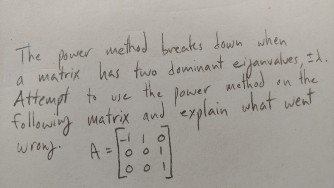 The power method breaks down when
a matrix has two dominant eigenvalues, ±λ.
Attempt to use the power method on the
following matrix and explain what went
wrong.
A = [-1 1 0
0 0 1
0 0 1]